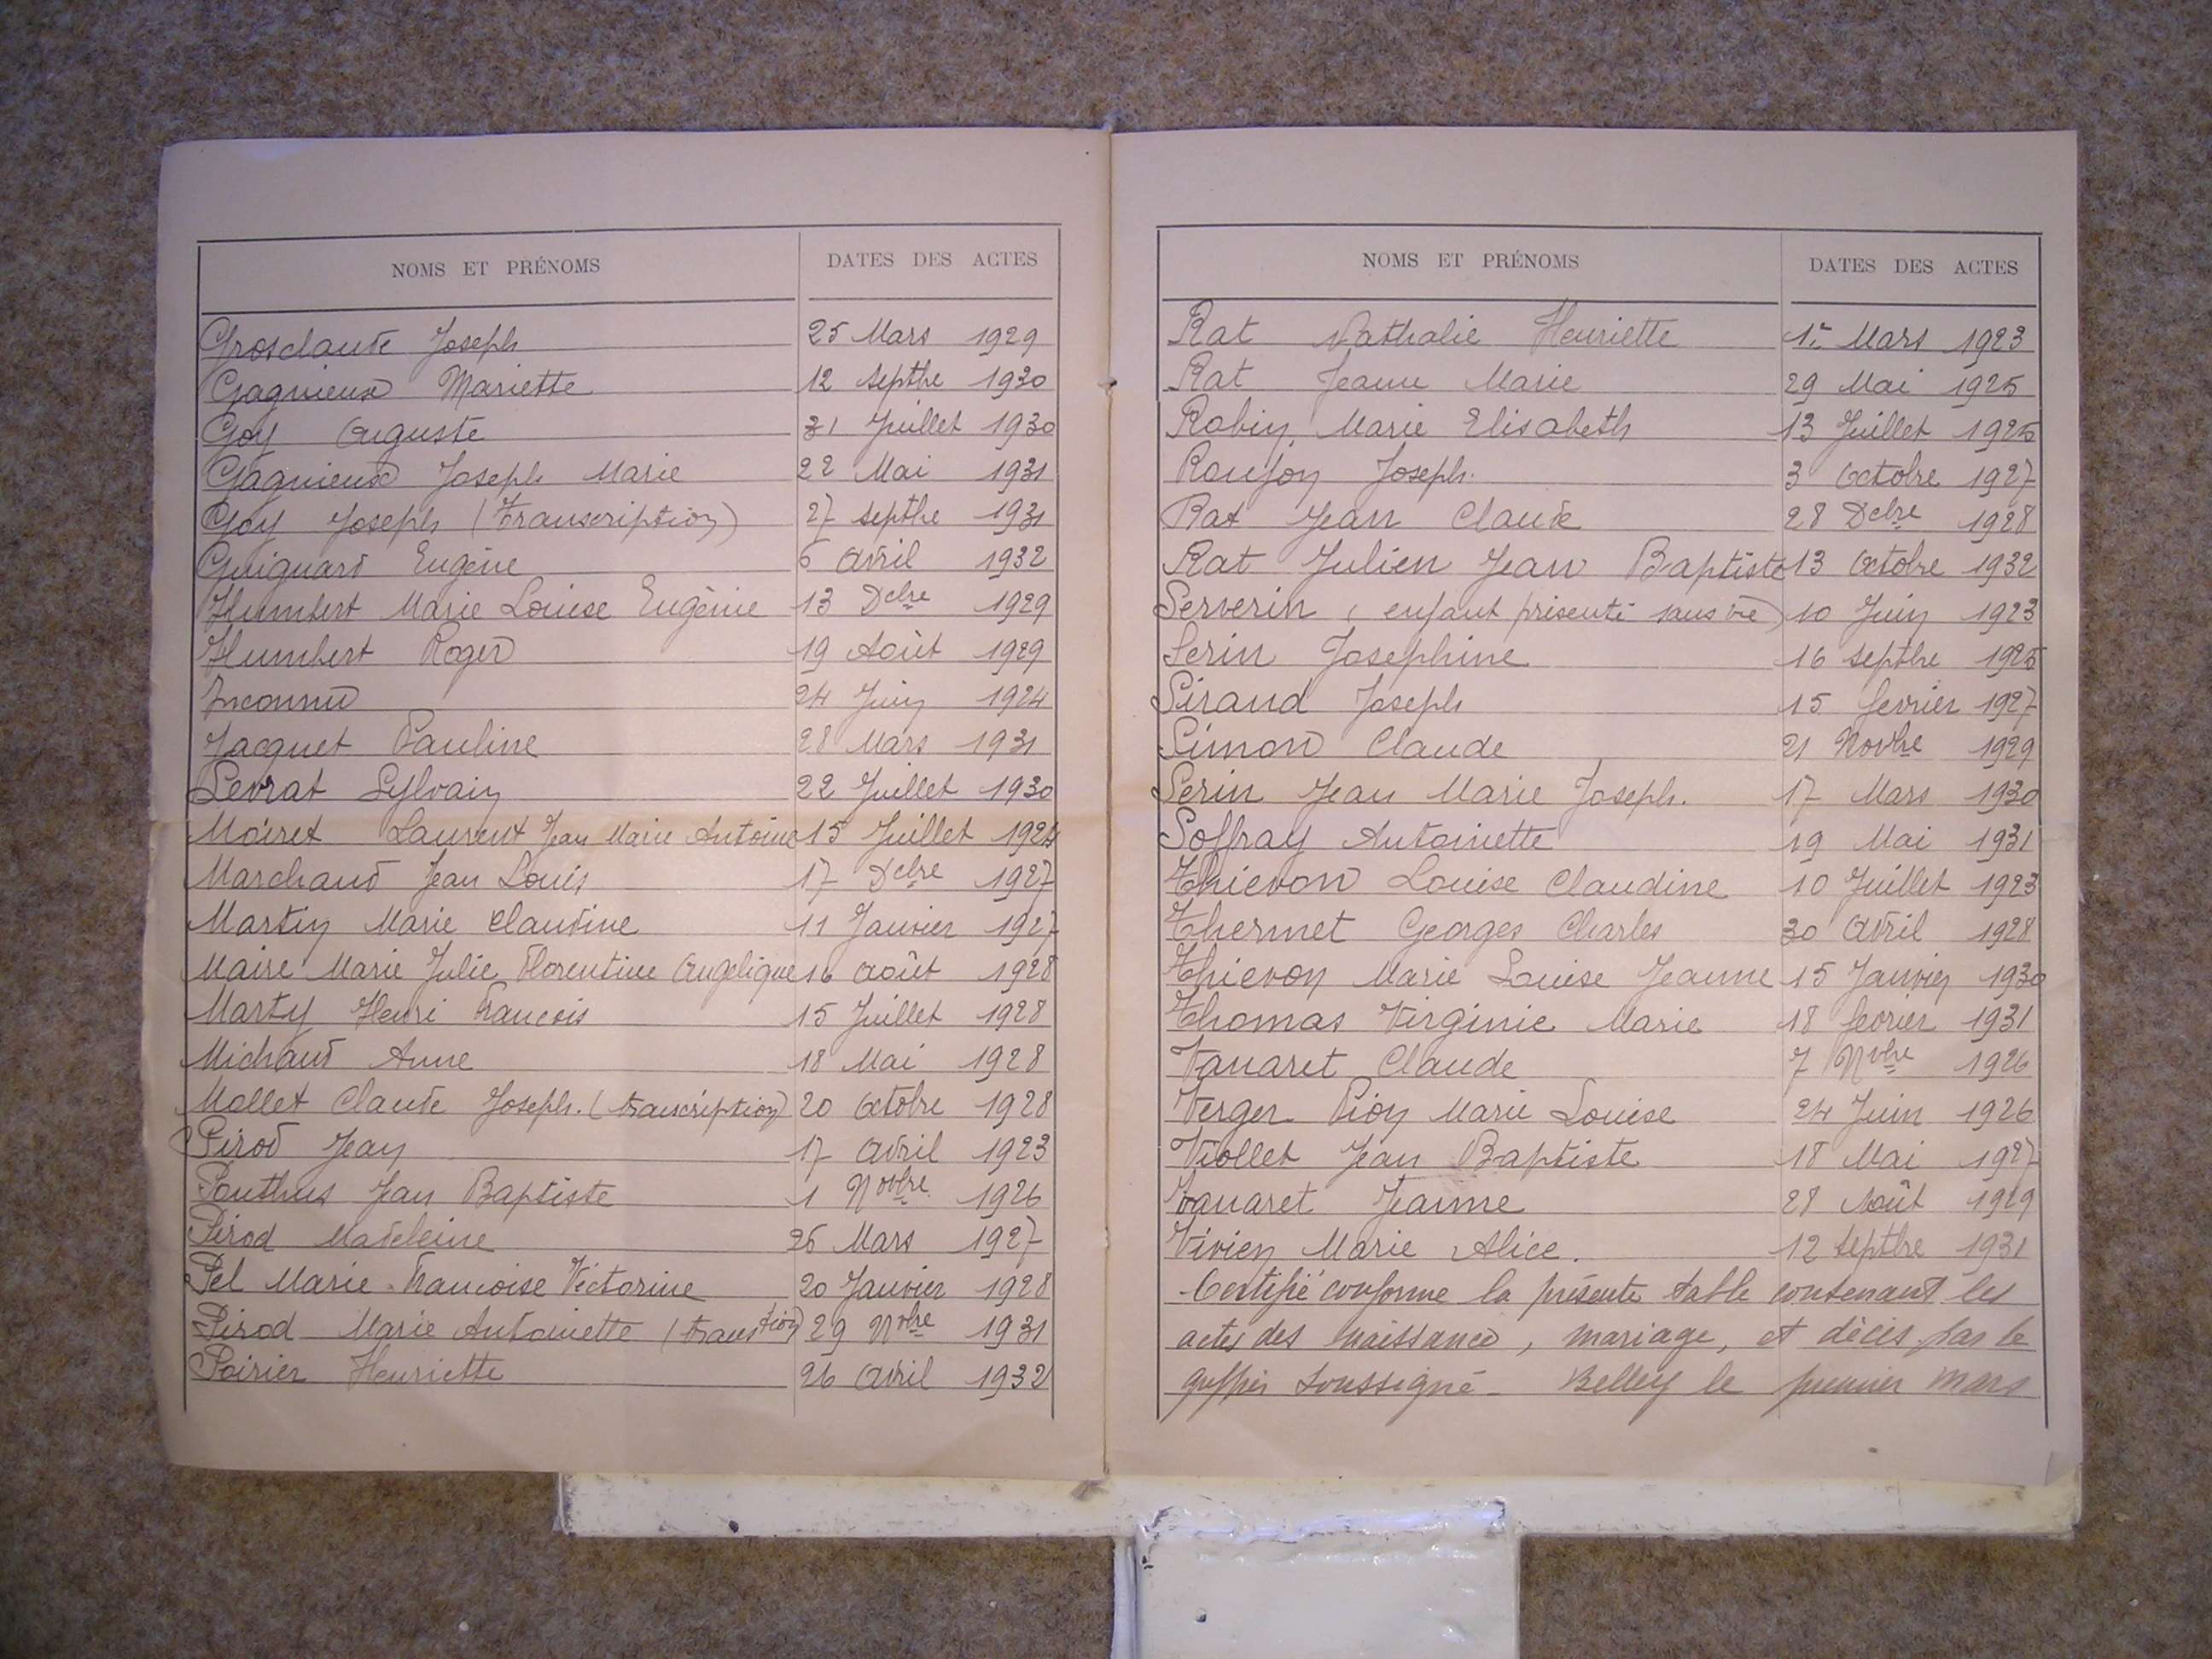 NOMS ET PRÉNOMS DATES DES ACTES
Grosclaude Joseph 25 Mars 1929
Gagnieux Mariette 12 septbre 1930
Goy Auguste 31 Juillet 1930
Gagnieux Joseph Marie 22 Mai 1931
Goy Joseph (Transcription) 27 septbre 1931
Guignard Eugène 6 avril 1932
Humbert Marie Louise Eugènie 13 Dcbre 1929
Humbert Roger 19 Août 1929
Inconnu 24 Juin 1924
Jacquet Pauline 28 Mars 1931
Levrat Sylvain 22 Juillet 1930
Moiret Laurent Jean Marie Antoine 15 Juillet 1924
Marchand Jean Louis 17 Dcbre 1927
Martin Marie Claudine 11 Janvier 1927
Maire Marie Julie Florentine Angelique 16 août 1928
Marty Henri Francois 15 Juillet 1928
Michaud Anne 18 Mai 1928
Mollet Claude Joseph. (transcription) 20 octobre 1928
Pirod Jean 17 avril 1923
Ponthus Jean Baptiste 1 Novbre 1926
Pirod Madeleine 26 Mars 1927
Pel Marie Francoise Victorine 20 Janvier 1928
Pirod Marie Antoinette (transtion) 29 Nvbre 1931
Poirier Henriette 26 avril 1932
NOMS ET PRÉNOMS DATES DES ACTES
Rat Nathalie Henriette 1r Mars 1923
Rat Jeanne Marie 29 Mai 1925
Robin, Marie Elisabeth 13 Juillet 1925
Roujon Joseph. 3 octobre 1927
Rat Jean Claude 28 Dcbre 1928
Rat Julien Jean Baptiste 13 octobre 1932
Serverin (enfant présenté sans vie) 10 Juin 1923
Serin Josephine 16 septbre 1925
Sirand Joseph 15 fevrier 1927
Simon Claude 21 Novbre 1929
Serin Jean Marie Joseph. 17 Mars 1930
Soffray Antoinette 19 Mai 1931
Thievon Louise Claudine 10 Juillet 1923
Thermet Georges Charles 30 avril 1928
Thievon Marie Louise Jeanne 15 Janvier 1930
Thomas Virginie Marie 18 fevrier 1931
Vanaret Claude 7 Nvbre 1926
Verger Pion Marie Louise 24 Juin 1926
Viollet Jean Baptiste 18 Mai 1927
Vanaret Jeanne 28 Août 1929
Vivien Marie Alice. 12 septbre 1931
Certifié conforme la présente table contenant les
actes des naissance, mariage, et décès par le
greffier soussigné - Belley le premier mars